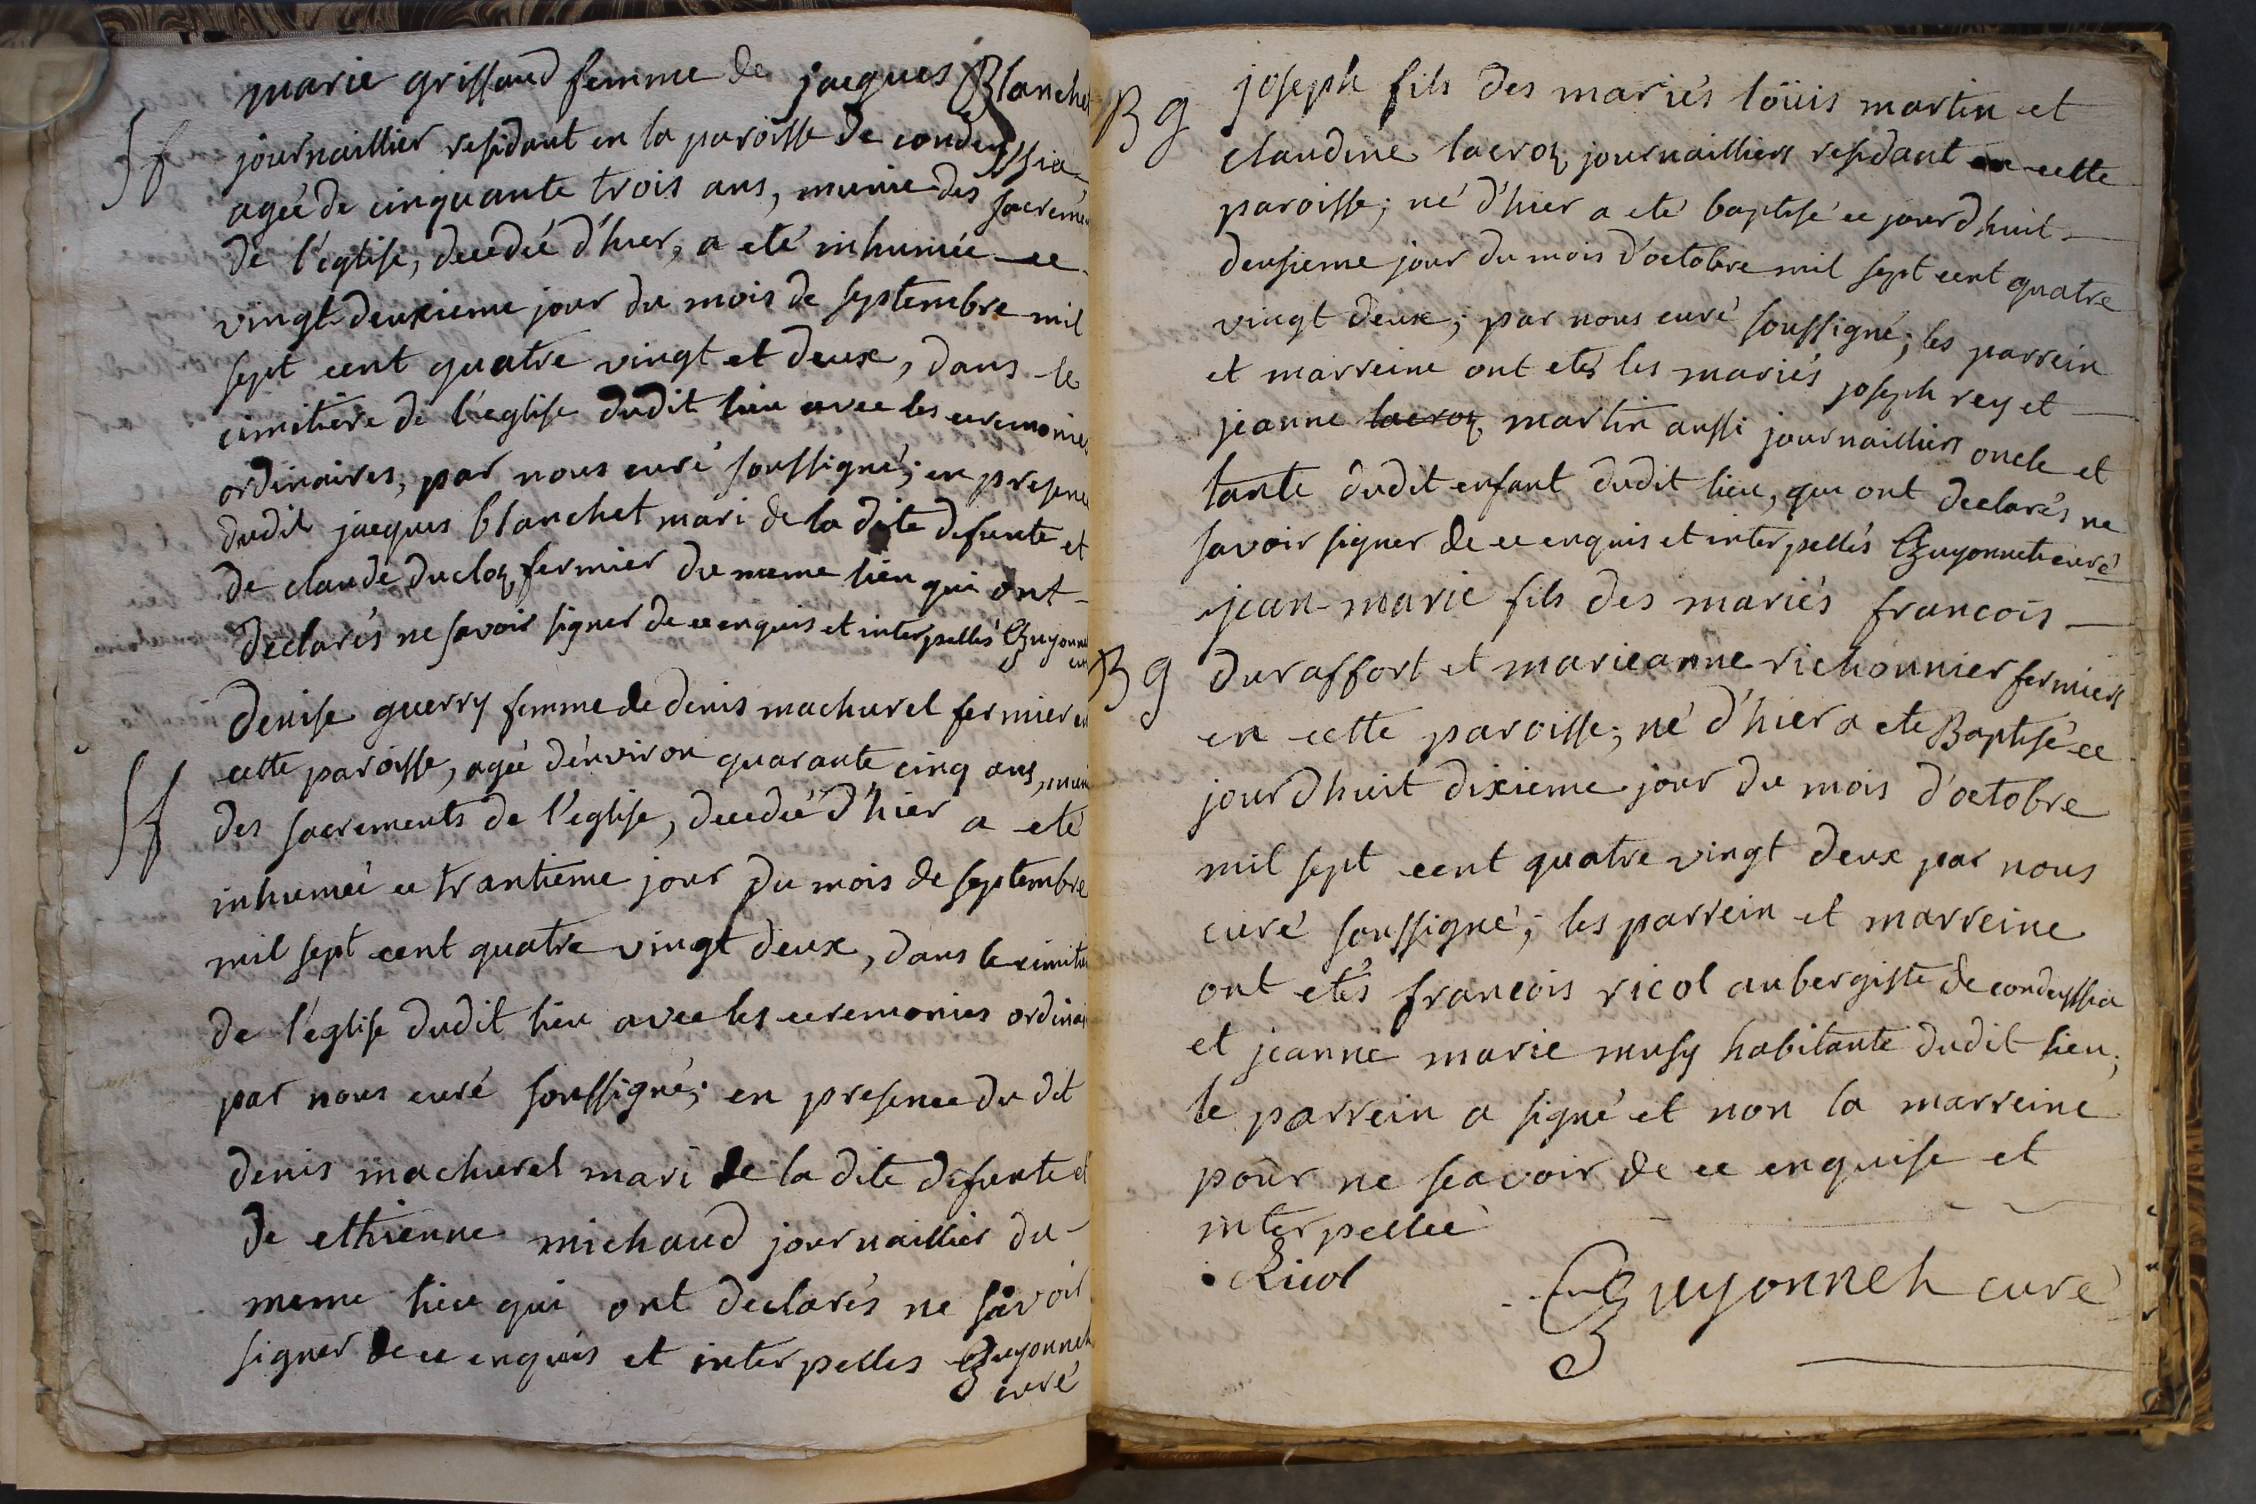 marie griffaud femme de jacques Blanche
Sf
journaillier residant en la paroisse de condeyssia
agée de cinquante trois ans, munie des sacremen
de l'eglise, decedée d'hier, a eté inhumée ce
vingt deuxieme jour du mois de septembre mil
sept cent quatre vingt et deux, dans le
cimitière de l'eglise dudit lieu avec les ceremonies
ordinaires, par nous curé soussigné; en presence
dudit jacques blanchet mari de la dite defunte et
de claude ducloz fermier du meme lieu qui ont
declarés ne savoir signer de ce enquis et interpellés Guyonne
cu
denise guerry femme de denis machurel fermier en
Sf
cette paroisse, agée d'environ quarante cinq ans, muni
des sacrements de l'eglise, decedée d'hier a eté
inhumée ce trantième jour du mois de septembre
mil sept cent quatre vingt deux, dans le cimitie
de l'eglise dudit lieu avec les ceremonies ordinai
par nous curé soussigné; en presence du dit
denis machurel mari de la dite defunte et
de ethienne michaud journaillier du
meme lieu qui ont declarés ne savoir
signer de ce enquis et interpelles Guyonnet
curé
B g
joseph fils des mariés loüis martin et
claudine lacroz journailliers residant en cette
paroisse; né d'hier a eté baptisé ce jourdhuit
deusieme jour du mois d'octobre mil sept cent quatre
vingt deux; par nous curé soussigné; les parrein
et marreine ont etés les mariés joseph rey et
jeanne lacroz martin aussi journailliers oncle et
tante dudit enfant dudit lieu, qui ont declarés ne
savoir signer de ce enquis et interpellés Guyonnet curé
jean-marie fils des mariés francois
B g
duraffort et marieanne richonnier fermiers
en cette paroisse; né d'hier a ete Baptisé ce
jourdhuit dixieme jour du mois d'octobre
mil sept cent quatre vingt deux par nous
curé soussigné; les parrein et marreine
ont etés francois ricol aubergiste de condeyssia
et jeanne marie musy habitante dudit lieu;
le parrein a signé et non la marreine
pour ne scavoir de ce enquise et
interpellée
Ricol
Guyonnet curé